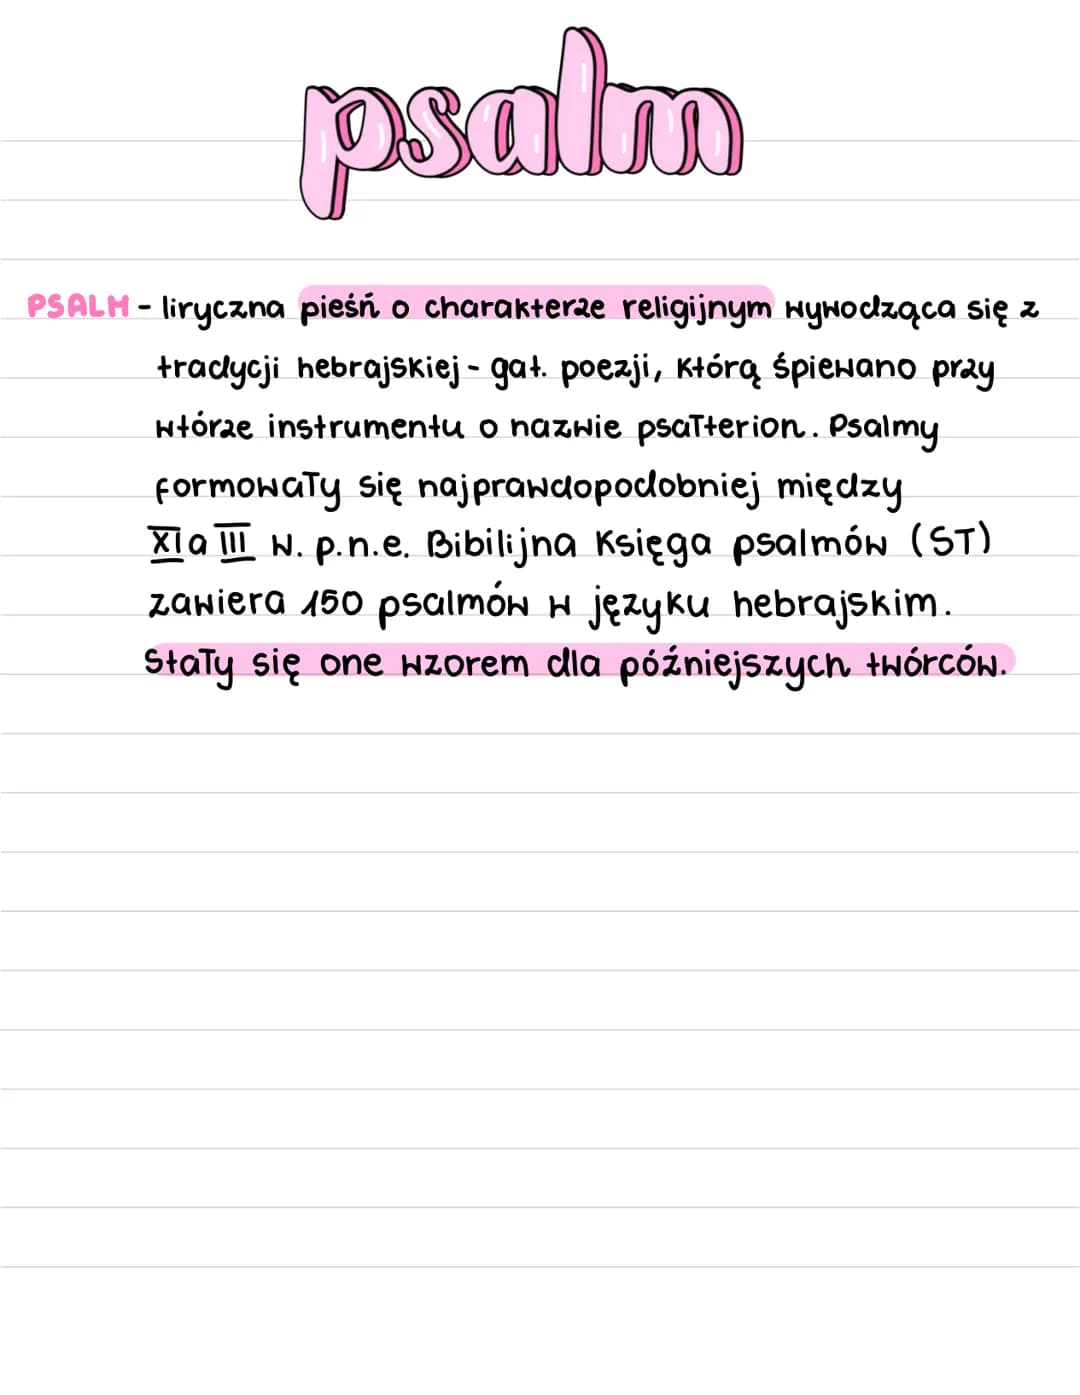 psalm
PSALM - liryczna pieśń o charakterze religijnym wywodząca się z
tradycji hebrajskiej - gat. poezji, którą śpiewano przy
wtórze instrumentu o nazwie psałterion. Psalmy
formowały się najprawdopodobniej między
XI a III w. p.n.e. Bibilijna Księga psalmów (ST)
zawiera 150 psalmów w języku hebrajskim.
Stały się one wzorem dla późniejszych twórców.